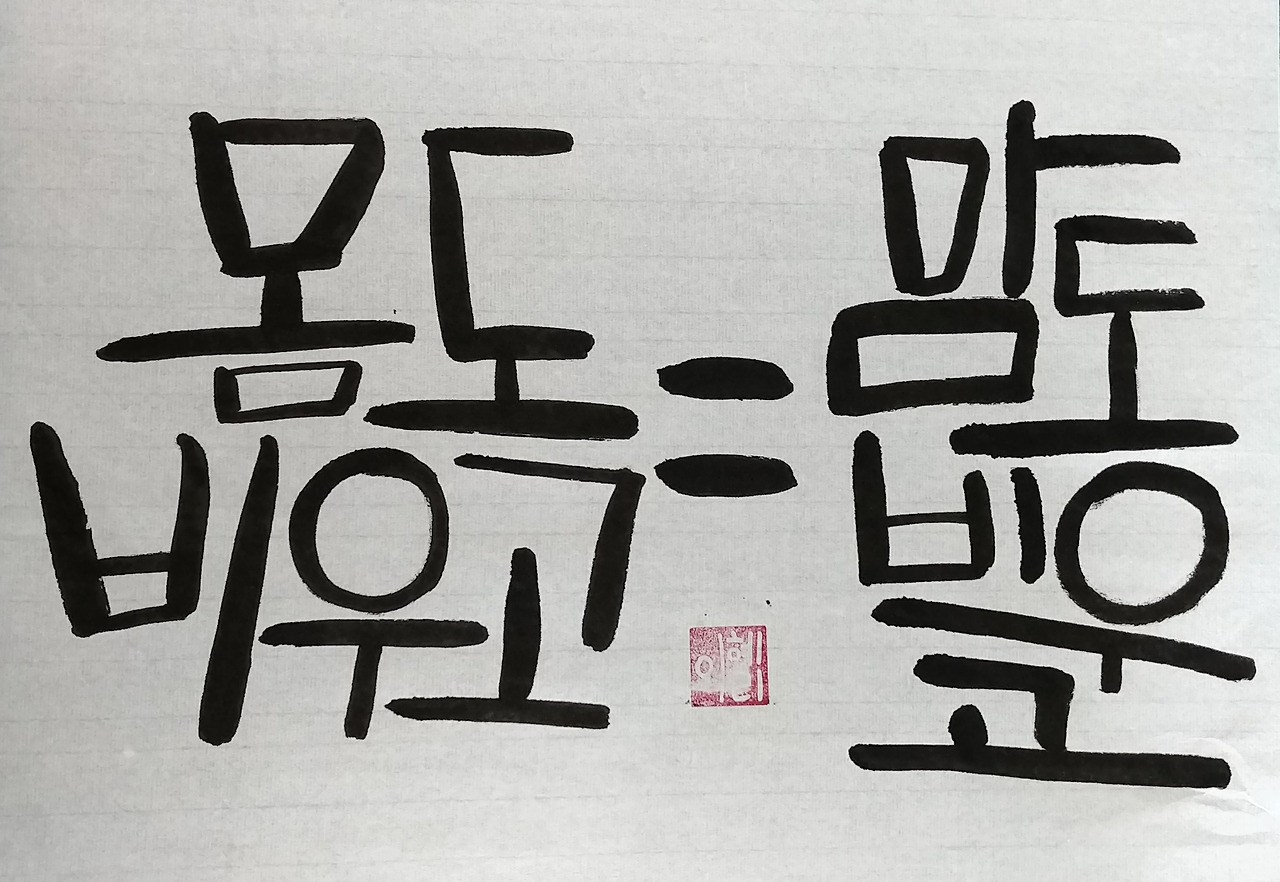 몸도
비우고
=
맘도
비우고